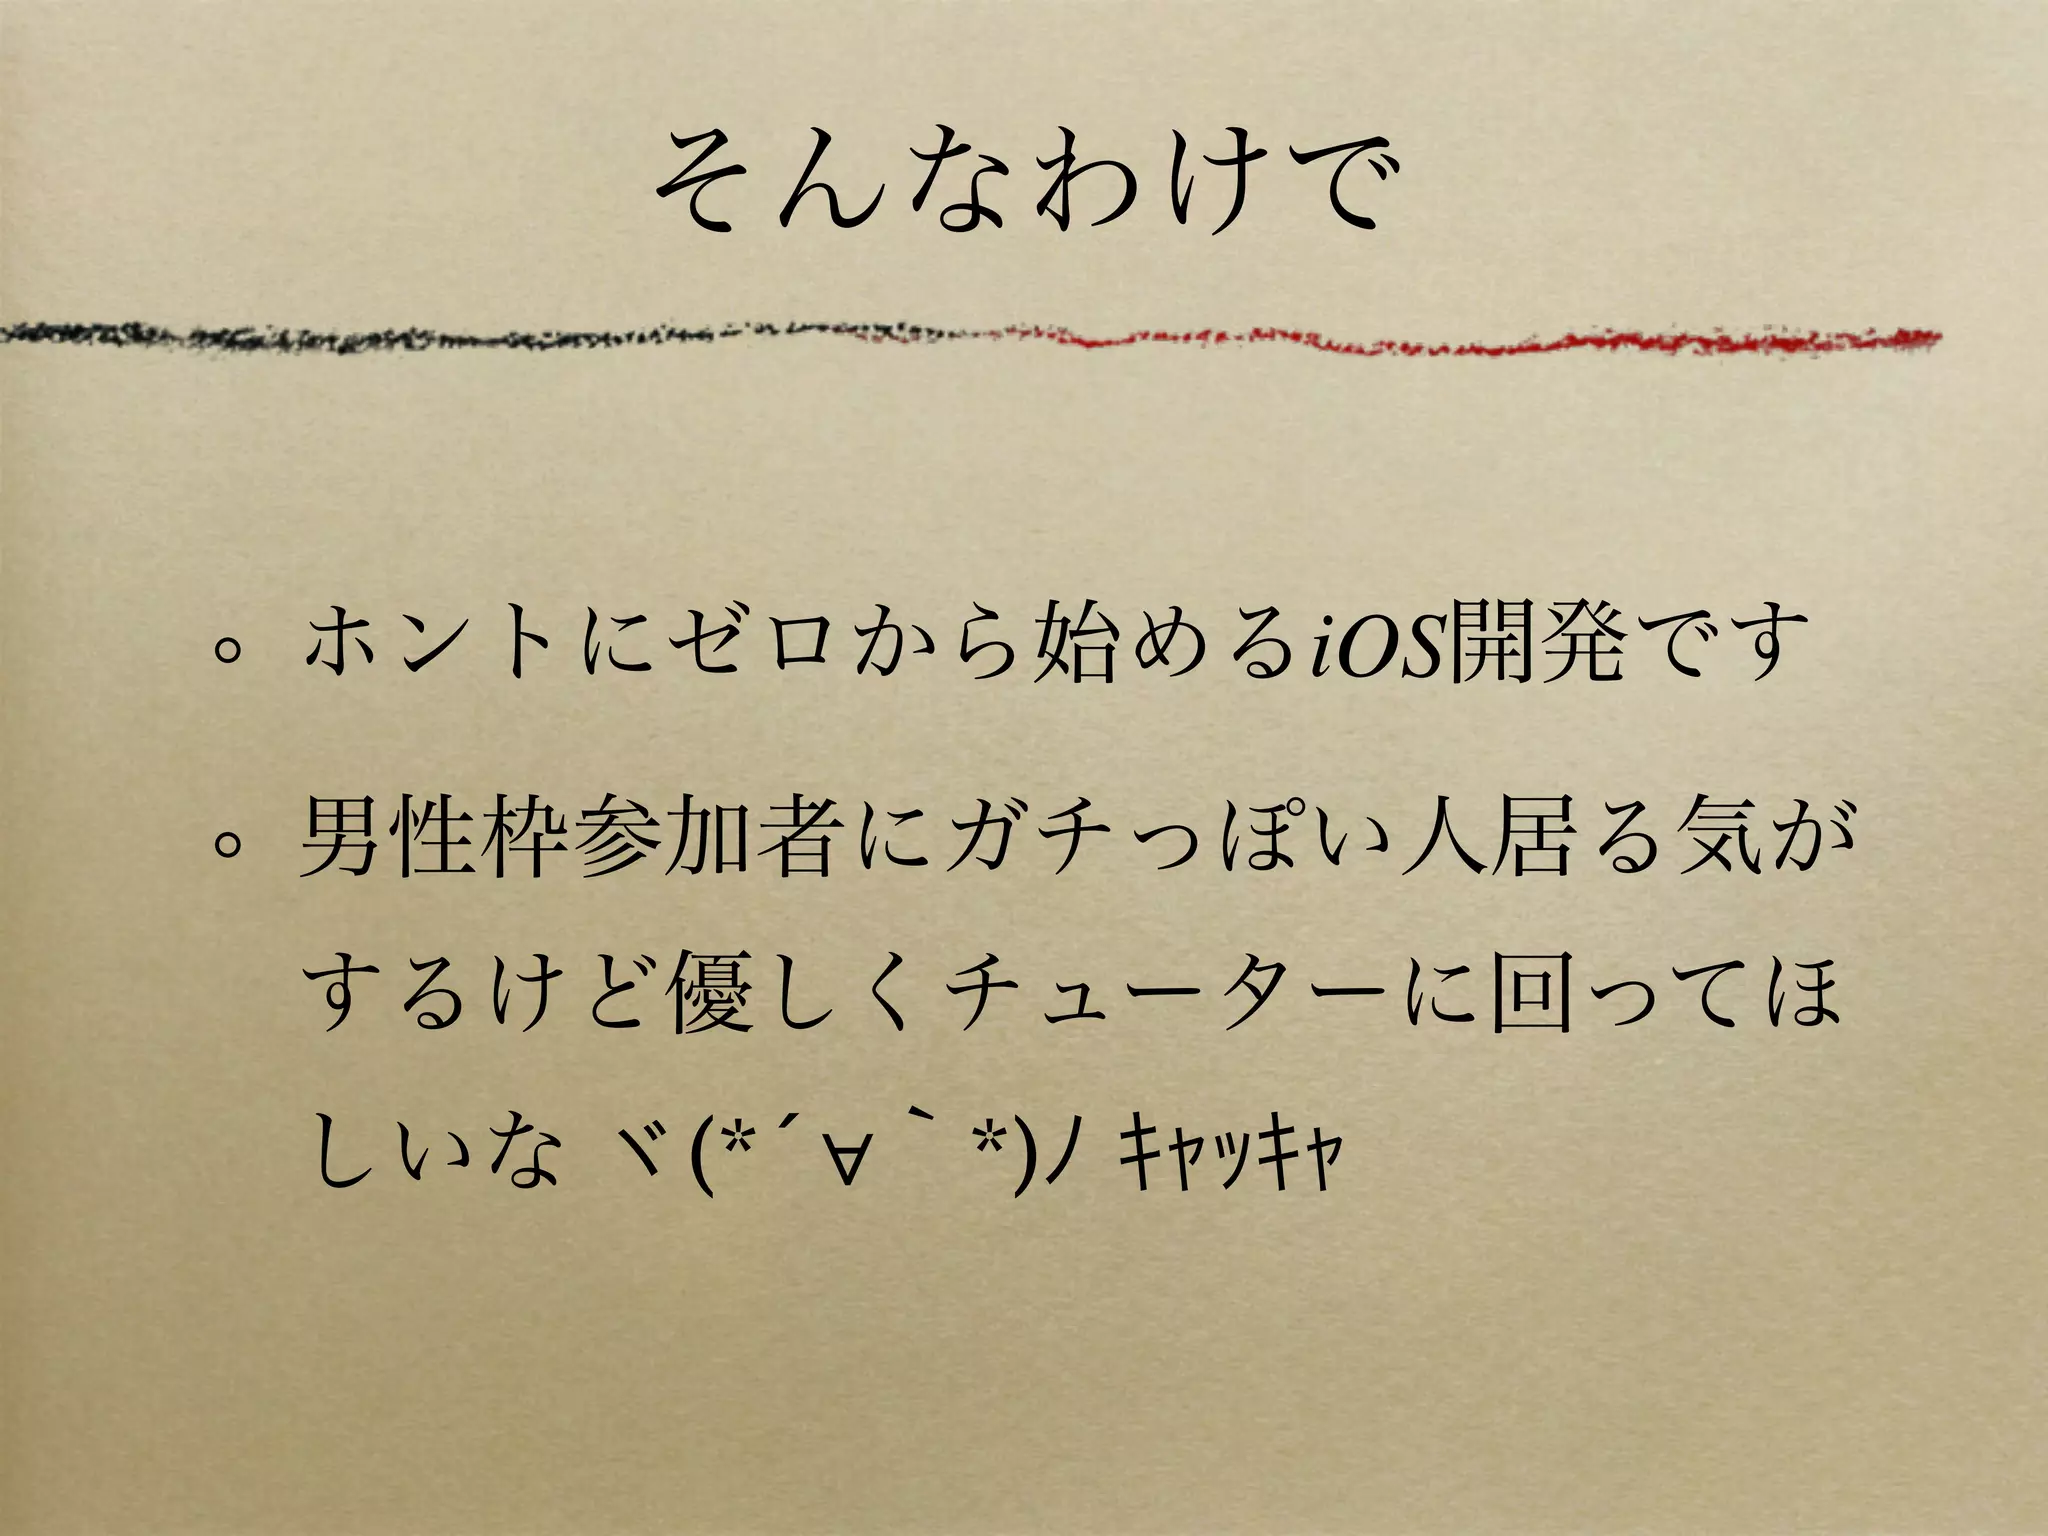 そんなわけで
ホントにゼロから始めるiOS開発です
男性枠参加者にガチっぽい人居る気が
するけど優しくチューターに回ってほ
しいな ヾ(*´∀｀*)ﾉ ｷｬｯｷｬ